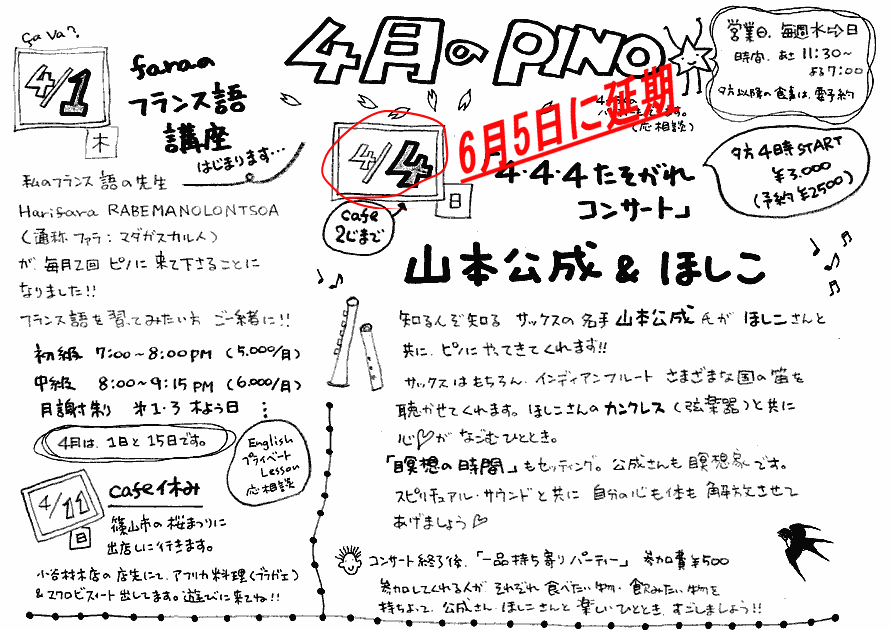 4月のPINO
営業日. 毎週水〜日
時間. あさ 11:30〜
よる7:00
夕方以降の食事は、要予約
ça va?
4/1
木
faraの
フランス語
講座
はじまります…
私のフランス語の先生
Harifara RABEMANOLONTSOA
(通称ファラ:マダガスカル人)
が、毎月2回ピノに来て下さることに
なりました!!
フランス語を習ってみたい方 ご一緒に!!
初級 7:00〜8:00PM (5,000/月)
中級 8:00〜9:15PM (6,000/月)
月謝制 第1・3 木よう日
4月は、1日と15日です。
English
プライベート
Lesson
応相談
4/11
日
cafe休み
篠山市の桜まつりに
出店しに行きます。
小谷材木店の店先にて、アフリカ料理(ブラガェ)
&マクロビスィート出してます。遊びに来てね!!
4/4
日
cafe
2じまで
6月5日に延期
(応相談)
「4・4・4たそがれ
コンサート」
夕方4時START
¥3,000
(予約¥2500)
山本公成&ほしこ
知る人ぞ知る サックスの名手山本公成氏がほしこさんと
共に、ピノにやってきてくれます!!
サックスはもちろん、インディアンフルート さまざまな国の笛を
聴かせてくれます。ほしこさんのカンクレス(弦楽器)と共に
心♡がなごむひととき。
「瞑想の時間」もセッティング。公成さんも瞑想家です。
スピリチュアル・サウンドと共に 自分の心も体も解放させて
あげましょう♡
コンサート終了後、「一品持ち寄りパーティー」 参加費¥500
参加してくれる人が それぞれ食べたい物・飲みたい物を
持ちよって、公成さん・ほしこさんと楽しいひととき、すごしましょう!!